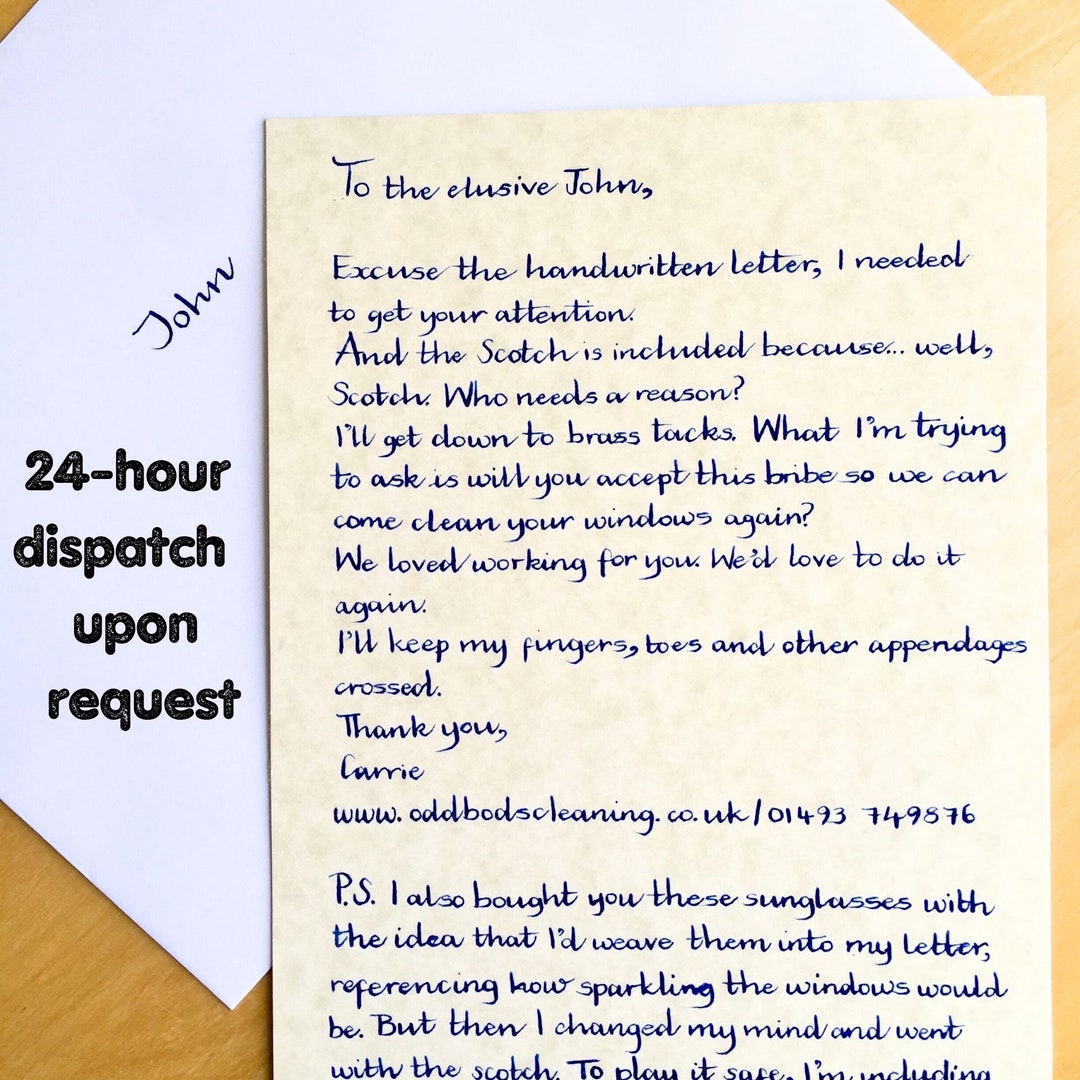 John
24-hour
dispatch
upon
request
To the elusive John,
Excuse the handwritten letter, I needed
to get your attention.
And the Scotch is included because... well,
Scotch. Who needs a reason?
I'll get down to brass tacks. What I'm trying
to ask is will you accept this bribe so we can
come clean your windows again?
We loved working for you. We'd love to do it
again.
I'll keep my fingers, toes and other appendages
crossed.
Thank you,
Carrie
www.oddbodscleaning.co.uk/01493 749876
P.S. I also bought you these sunglasses with
the idea that I'd weave them into my letter,
referencing how sparkling the windows would
be. But then I changed my mind and went
with the scotch. To play it safe, I'm including